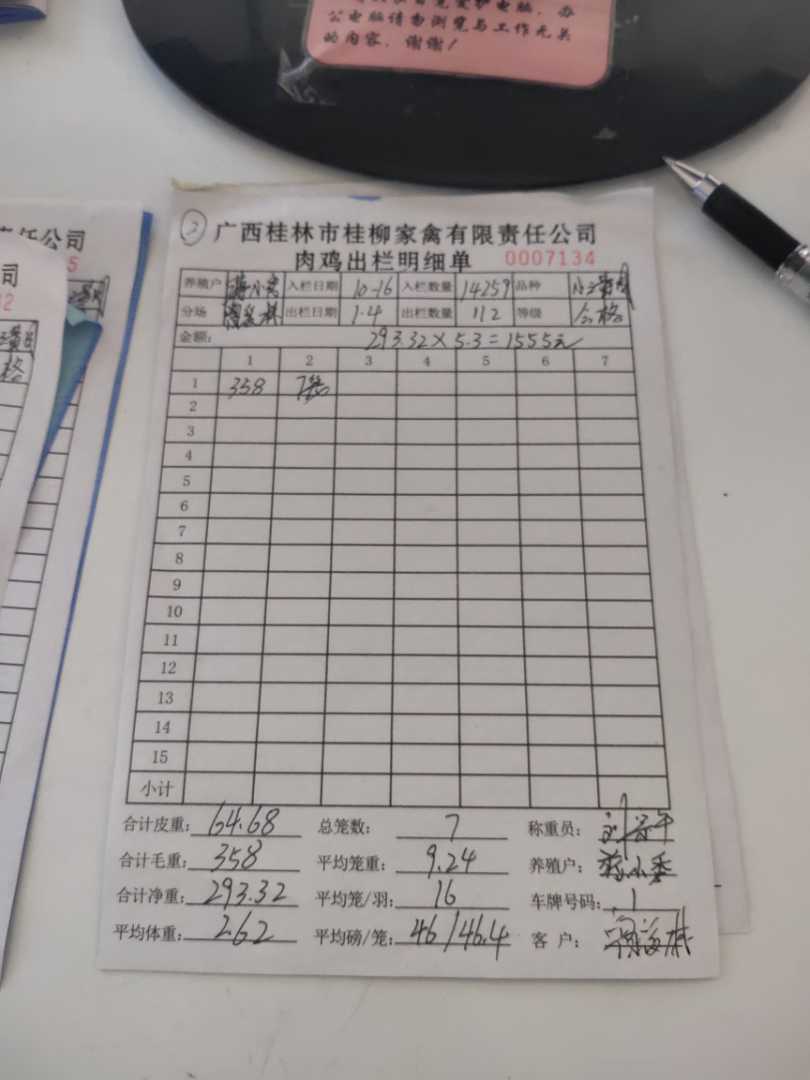 公电脑请勿浏览与工作无关
的内容，谢谢！
责任公司
5
司
2
格
② 广西桂林市桂柳家禽有限责任公司
肉鸡出栏明细单 0007134
养殖户 入栏日期 10-16 入栏数量 14259 品种
分场 出栏日期 1-4 出栏数量 112 等级 合格
金额: 293.32×5.3=1555元
1 2 3 4 5 6 7
1 358 7笼
2
3
4
5
6
7
8
9
10
11
12
13
14
15
小计
合计皮重: 64.68 总笼数: 7 称重员:
合计毛重: 358 平均笼重: 9.24 养殖户:
合计净重: 293.32 平均笼/羽: 16 车牌号码: 1
平均体重: 2.62 平均磅/笼: 46/46.4 客 户: